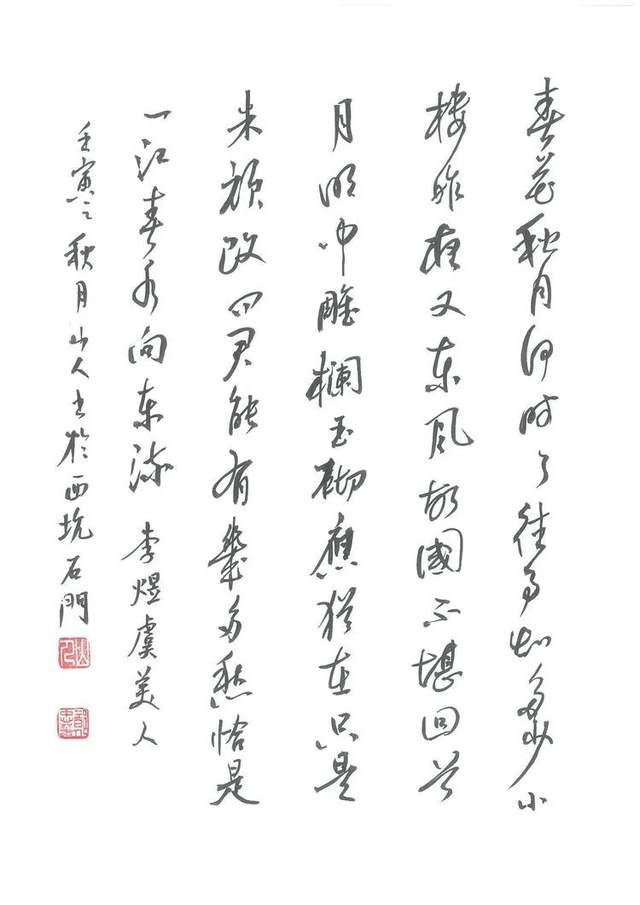 春花秋月何時了往事知多少小
樓昨夜又東風故國不堪回首
月明中雕欄玉砌應猶在只是
朱顏改問君能有幾多愁恰是
一江春水向東流 李煜虞美人
壬寅之秋月山人書於西坑石門
山人